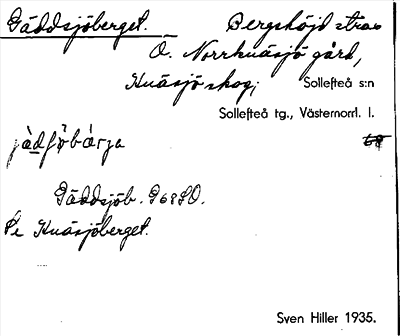 Gäddsjöberget. Bergshöjd strax
Ö. Norrknäsjö gård,
Knäsjö skog; Sollefteå s:n
Sollefteå tg., Västernorrl. l.
jàdʃö̀bǽrja 68
Gäddsjöb. G68SO.
Se Knäsjöberget.
Sven Hiller 1935.